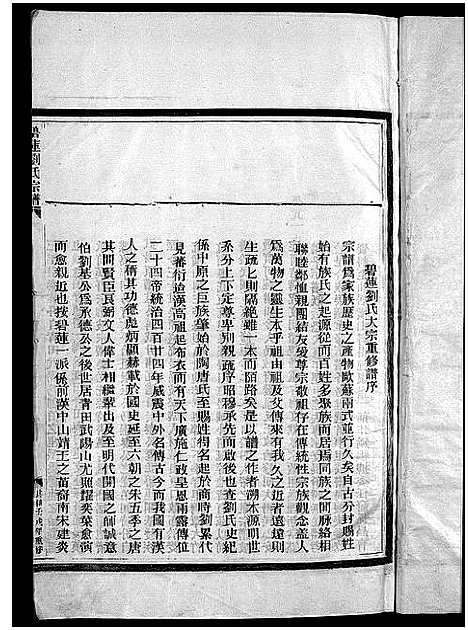 碧蓮劉氏大宗重修譜序
宗譜爲家族歷史之產物歐蘇兩式並行久矣自古分封賜姓
始有族氏之起源從而百姓多聚族而居焉同族之間脉絡相
聯睦鄰恤親團結友愛尊宗敬祖存在傳統性宗族觀念蓋人
爲萬物之靈生本乎祖由祖及父傳來有我久之近者遠遠則
生疏上則隔絶雖一本而陌路矣是以譜之作者溯水源明世
系分上下定尊卑別親疏序昭穆承先而啟後也查劉氏史紀
係中原之巨族肇始於陶唐氏至賜姓得名起於商時劉累代
見蕃衍追漢高祖起布衣而有天下廣施仁政皇恩雨露傳位
二十四帝統治四百廿四年威震中外名傳古今而我國有漢
人之稱其功德處炳顯赫載於國史延至六朝之宋五季之唐
其間賢臣良劉文人偉士相繼輩出及至明代開國之師誠意
伯劉基公爲承德公之後世居青田武陽山尤照耀奕葉愈演
而愈親近也按碧蓮一派係前漢中山靖王之苗裔南宋建炎
碧蓮劉氏宗譜